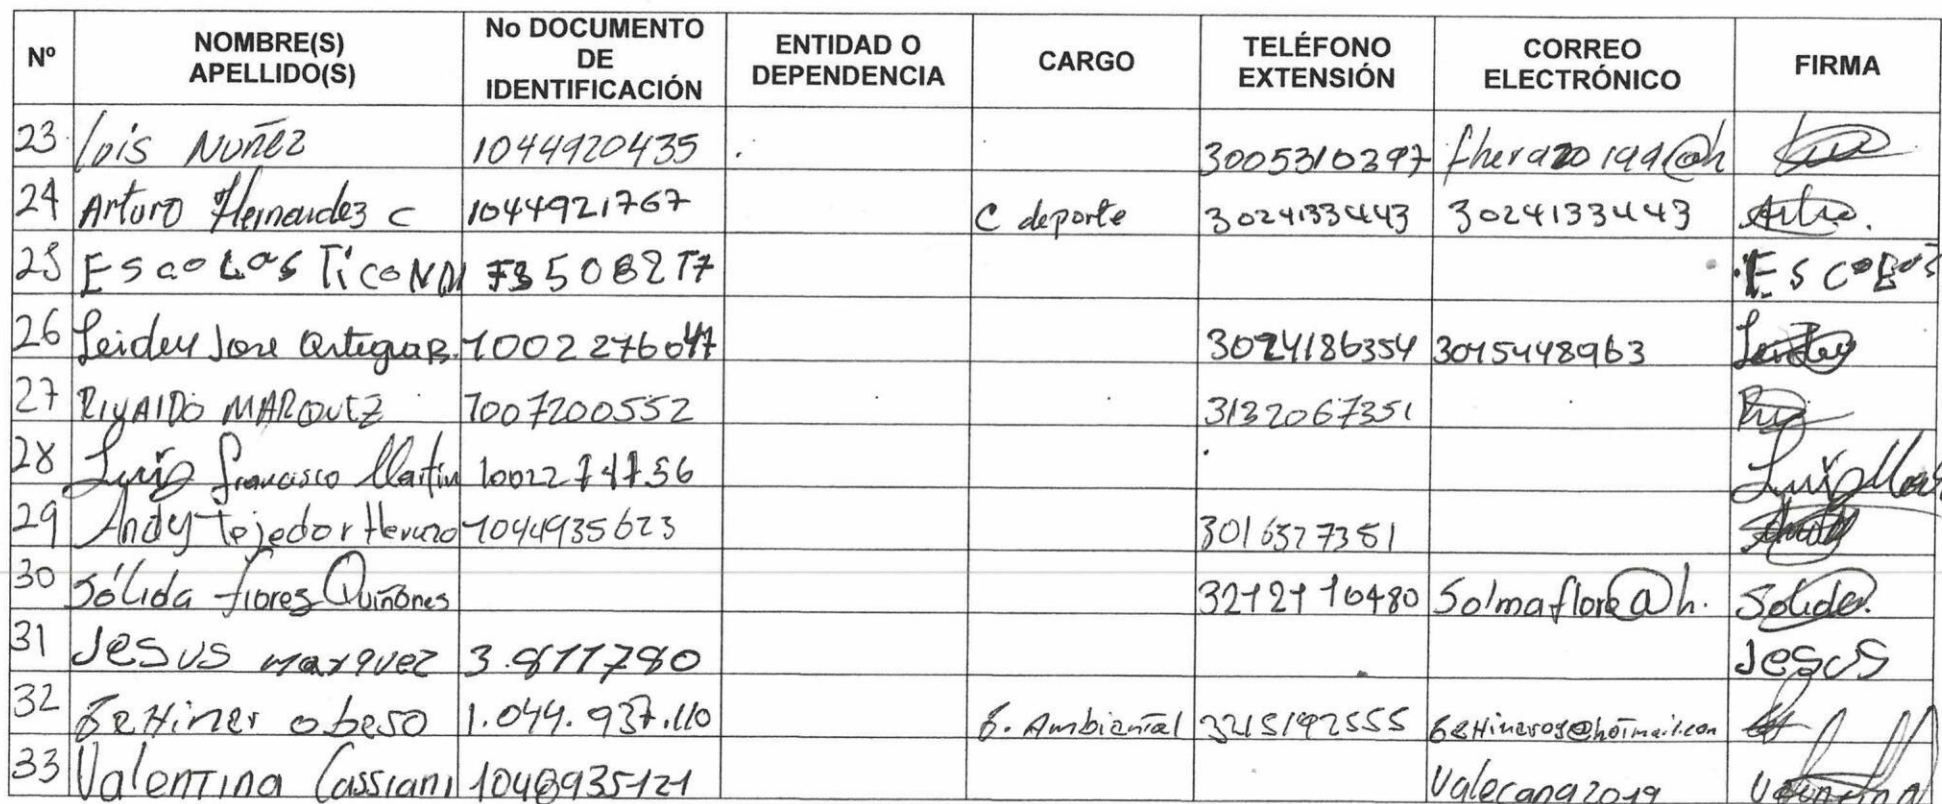 Nº NOMBRE(S) APELLIDO(S) No DOCUMENTO DE IDENTIFICACIÓN ENTIDAD O DEPENDENCIA CARGO TELÉFONO EXTENSIÓN CORREO ELECTRÓNICO FIRMA
23 Luis Nuñez 1044920435 3005310397 fherazo199@h
24 Arturo Hernandez C 1044921767 C deporte 3024133443 3024133443 Artro.
25 EscoLasTico 73508217
26 Leidey Jose Ortega B. 1002276047 3024186354 3015448963 Leidey
27 RIVAlDO MARQUEZ 1007200552 3132067351
28 Luis francisco Martin Luis
29 Andy Tejedor Herazo 1044935623 3016527351
30 Sólida flores Quiñones 3212110480 Solmaflore@h. Solida.
31 Jesus marquez 3.811780 Jesus
32 obeso 1.044.937.110 G. Ambiental 3215192555
33 Valentina Cassiani Valecana2019